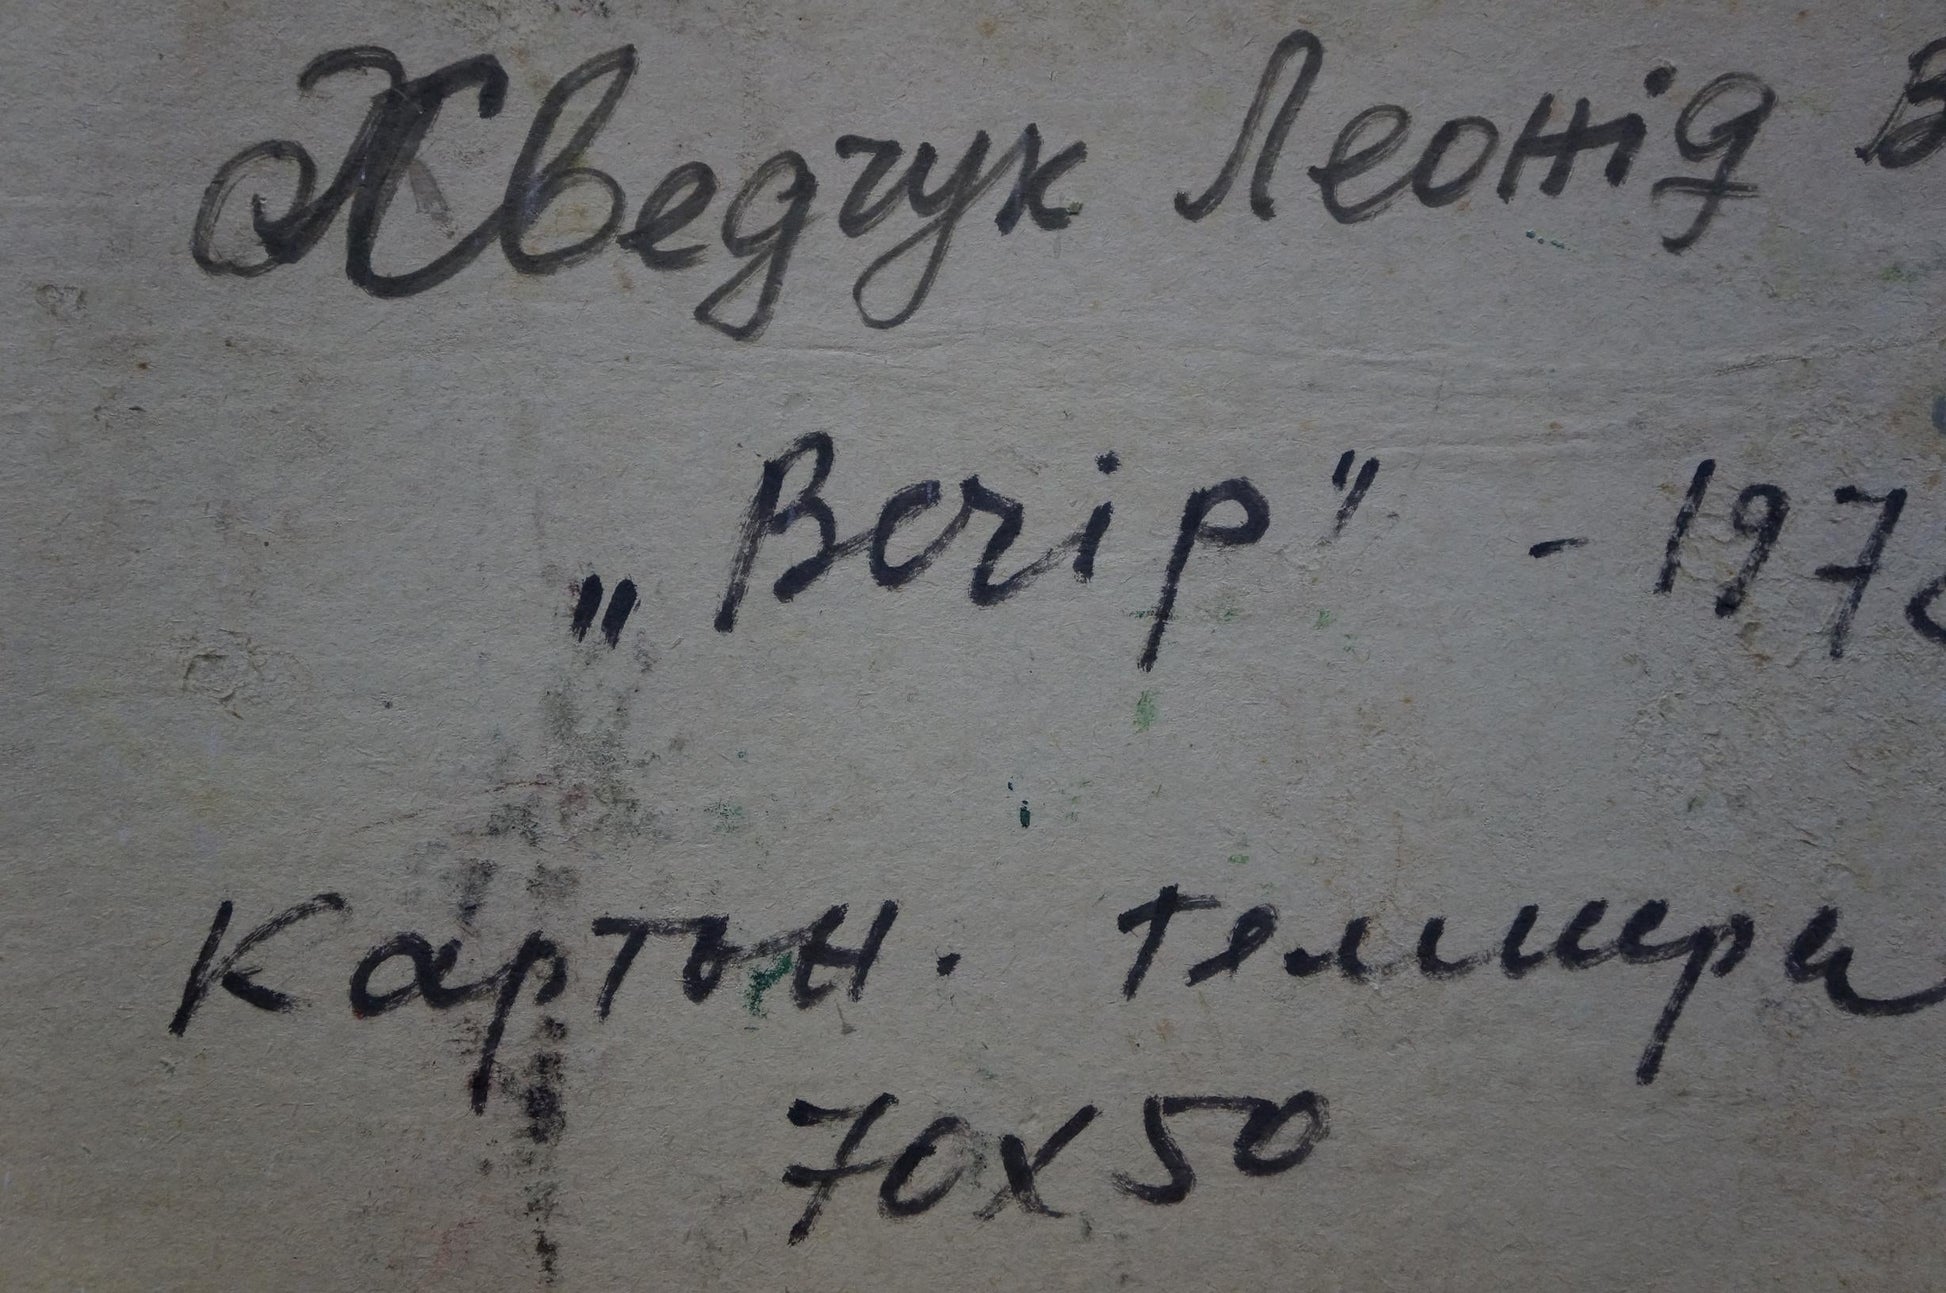 Хведчук Леонід В
„Вечір" - 197
Картон. Темпера
70х50